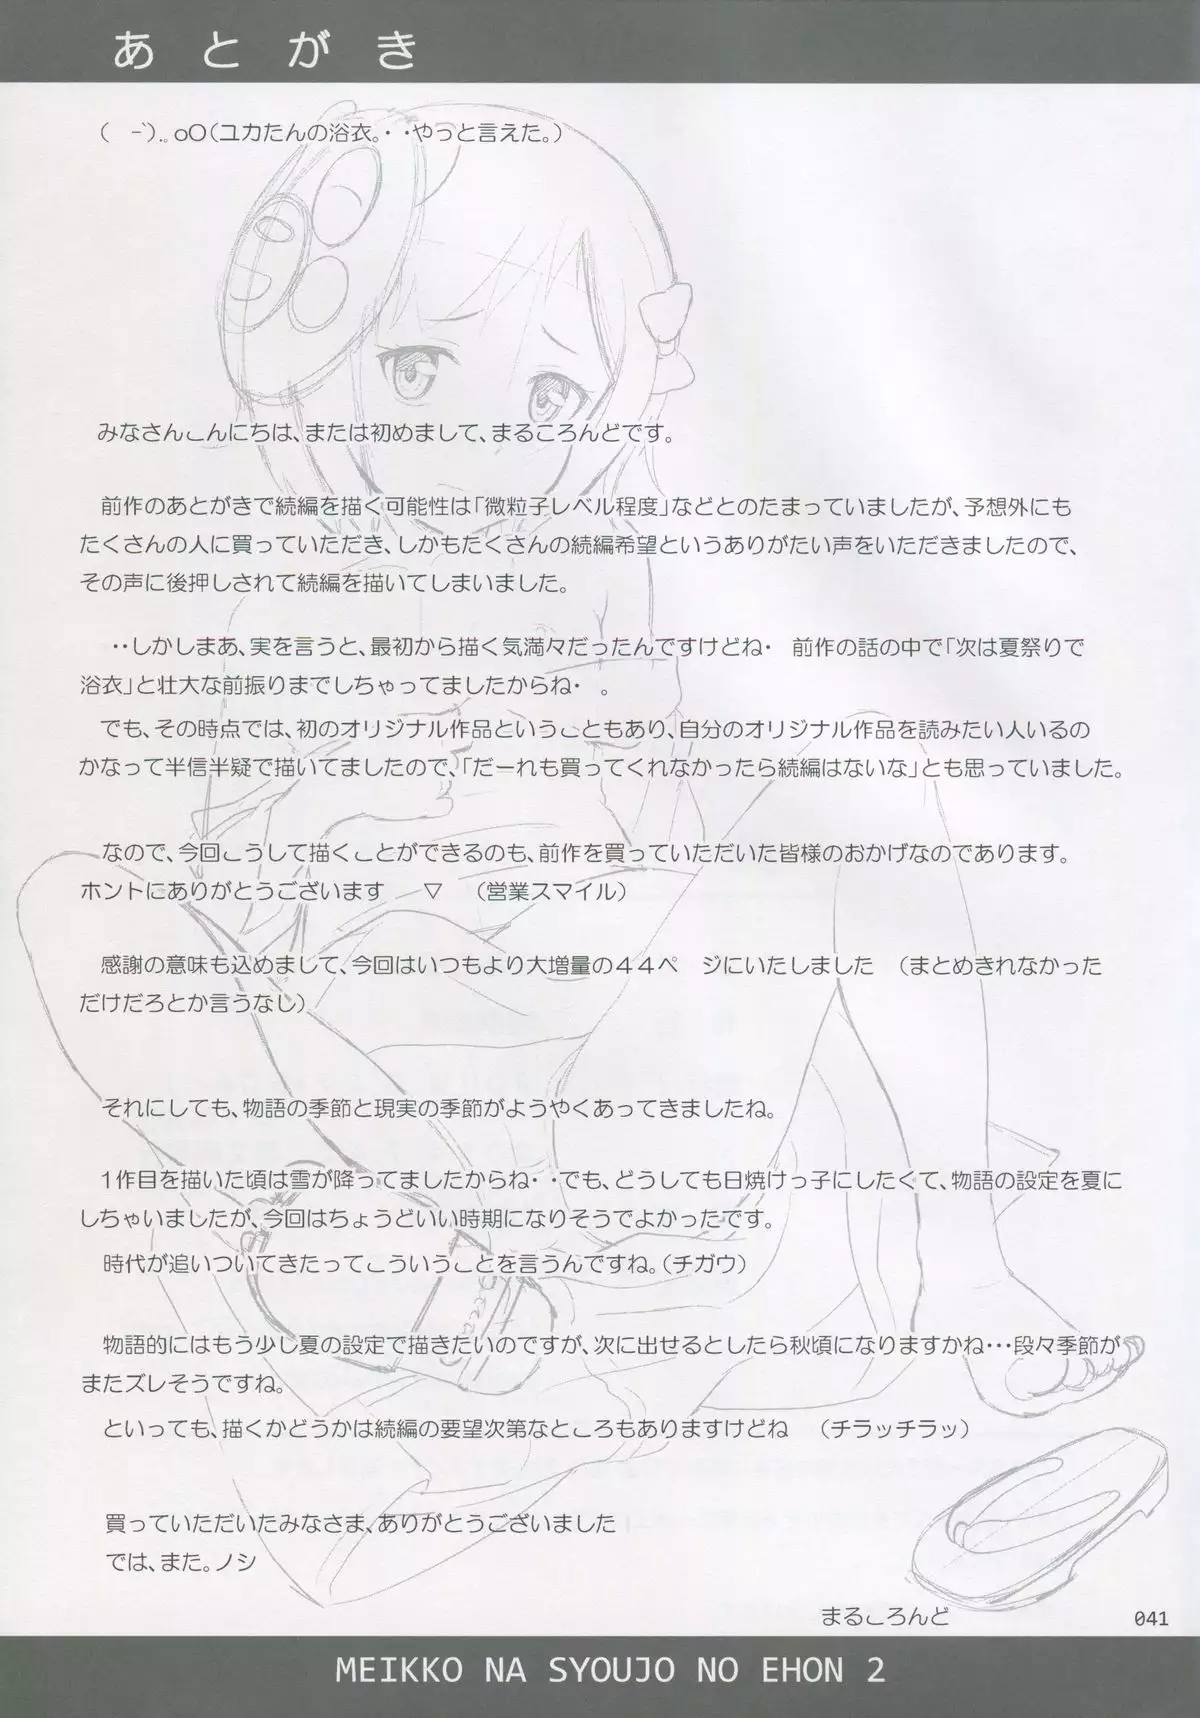 あとがき
( -`).。oO(ユカたんの浴衣。・・やっと言えた。)
みなさんこんにちは、または初めまして、まるころんどです。
前作のあとがきで続編を描く可能性は「微粒子レベル程度」などとのたまっていましたが、予想外にも
たくさんの人に買っていただき、しかもたくさんの続編希望というありがたい声をいただきましたので、
その声に後押しされて続編を描いてしまいました。
・・しかしまあ、実を言うと、最初から描く気満々だったんですけどね・ 前作の話の中で「次は夏祭りで
浴衣」と壮大な前振りまでしちゃってましたからね・ 。
でも、その時点では、初のオリジナル作品ということもあり、自分のオリジナル作品を読みたい人いるの
かなって半信半疑で描いてましたので、「だーれも買ってくれなかったら続編はないな」とも思っていました。
なので、今回こうして描くことができるのも、前作を買っていただいた皆様のおかげなのであります。
ホントにありがとうございます ▽ (営業スマイル)
感謝の意味も込めまして、今回はいつもより大増量の44ペ ジにいたしました (まとめきれなかった
だけだろとか言うなし)
それにしても、物語の季節と現実の季節がようやくあってきましたね。
1作目を描いた頃は雪が降ってましたからね・・でも、どうしても日焼けっ子にしたくて、物語の設定を夏に
しちゃいましたが、今回はちょうどいい時期になりそうでよかったです。
時代が追いついてきたってこういうことを言うんですね。(チガウ)
物語的にはもう少し夏の設定で描きたいのですが、次に出せるとしたら秋頃になりますかね・・・段々季節が
またズレそうですね。
といっても、描くかどうかは続編の要望次第なところもありますけどね (チラッチラッ)
買っていただいたみなさま、ありがとうございました
では、また。ノシ
まるころんど
041
MEIKKO NA SYOUJO NO EHON 2